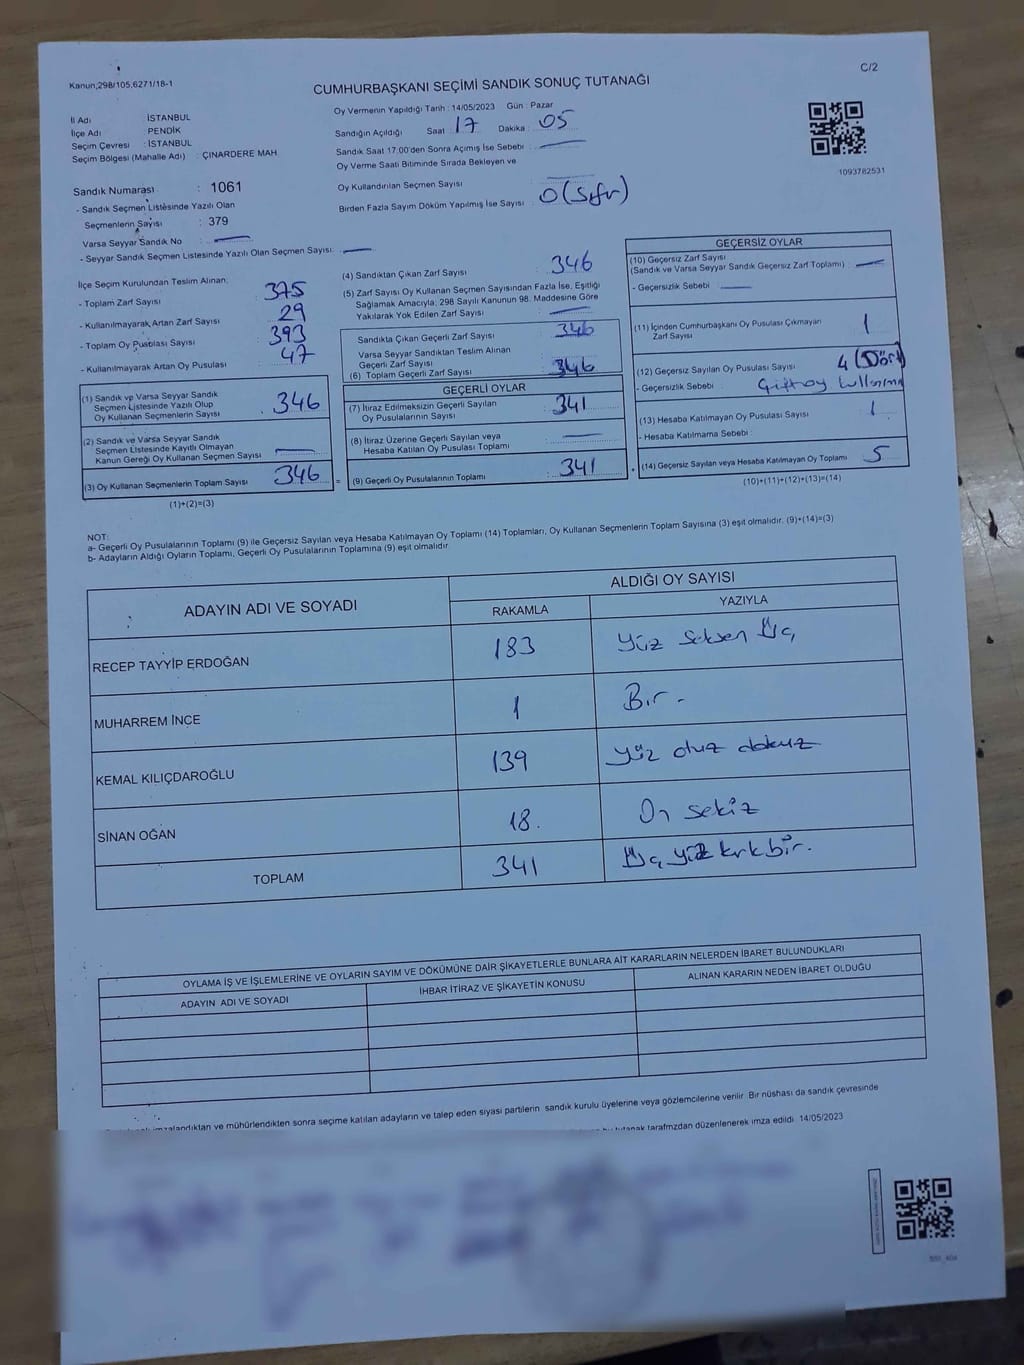 C/2
Kanun,298/105,6271/18-1
CUMHURBAŞKANI SEÇİMİ SANDIK SONUÇ TUTANAĞI
İl Adı İSTANBUL
İlçe Adı PENDİK
Seçim Çevresi : İSTANBUL
Seçim Bölgesi (Mahalle Adı) : ÇINARDERE MAH
Sandık Numarası : 1061
- Sandık Seçmen Listesinde Yazılı Olan
Seçmenlerin Sayısı : 379
Varsa Seyyar Sandık No
- Seyyar Sandık Seçmen Listesinde Yazılı Olan Seçmen Sayısı:
Oy Vermenin Yapıldığı Tarih : 14/05/2023 Gün : Pazar
Sandığın Açıldığı Saat 17 Dakika : 05
Sandık Saat 17:00'den Sonra Açımış İse Sebebi :
Oy Verme Saati Bitiminde Sırada Bekleyen ve
Oy Kullandırılan Seçmen Sayısı
Birden Fazla Sayım Döküm Yapılmış İse Sayısı : 0 (Sıfır)
1093782531
İlçe Seçim Kurulundan Teslim Alınan:
- Toplam Zarf Sayısı 375
- Kullanılmayarak Artan Zarf Sayısı 29
- Toplam Oy Pusulası Sayısı 393
- Kullanılmayarak Artan Oy Pusulası 47
(1) Sandık ve Varsa Seyyar Sandık
Seçmen Listesinde Yazılı Olup
Oy Kullanan Seçmenlerin Sayısı 346
(2) Sandık ve Varsa Seyyar Sandık
Seçmen Listesinde Kayıtlı Olmayan
Kanun Gereği Oy Kullanan Seçmen Sayısı
(3) Oy Kullanan Seçmenlerin Toplam Sayısı 346 =
(1)+(2)=(3)
(4) Sandıktan Çıkan Zarf Sayısı 346
(5) Zarf Sayısı Oy Kullanan Seçmen Sayısından Fazla İse, Eşitliği
Sağlamak Amacıyla; 298 Sayılı Kanunun 98. Maddesine Göre
Yakılarak Yok Edilen Zarf Sayısı
Sandıkta Çıkan Geçerli Zarf Sayısı 346
Varsa Seyyar Sandıktan Teslim Alınan
Geçerli Zarf Sayısı
(6) Toplam Geçerli Zarf Sayısı 346
GEÇERLİ OYLAR
(7) İtiraz Edilmeksizin Geçerli Sayılan
Oy Pusulalarının Sayısı 341
(8) İtiraz Üzerine Geçerli Sayılan veya
Hesaba Katılan Oy Pusulası Toplamı
(9) Geçerli Oy Pusulalarının Toplamı 341
GEÇERSİZ OYLAR
(10) Geçersiz Zarf Sayısı
(Sandık ve Varsa Seyyar Sandık Geçersiz Zarf Toplamı) :
- Geçersizlik Sebebi :
(11) İçinden Cumhurbaşkanı Oy Pusulası Çıkmayan
Zarf Sayısı 1
(12) Geçersiz Sayılan Oy Pusulası Sayısı 4 (Dört)
- Geçersizlik Sebebi : Çift oy kullanma
(13) Hesaba Katılmayan Oy Pusulası Sayısı 1
- Hesaba Katılmama Sebebi :
(14) Geçersiz Sayılan veya Hesaba Katılmayan Oy Toplamı 5
(10)+(11)+(12)+(13)=(14)
NOT:
a- Geçerli Oy Pusulalarının Toplamı (9) ile Geçersiz Sayılan veya Hesaba Katılmayan Oy Toplamı (14) Toplamları, Oy Kullanan Seçmenlerin Toplam Sayısına (3) eşit olmalıdır. (9)+(14)=(3)
b- Adayların Aldığı Oyların Toplamı, Geçerli Oy Pusulalarının Toplamına (9) eşit olmalıdır.
ADAYIN ADI VE SOYADI ALDIĞI OY SAYISI
RAKAMLA YAZIYLA
RECEP TAYYİP ERDOĞAN 183 Yüz Seksen Üç
MUHARREM İNCE 1 Bir -
KEMAL KILIÇDAROĞLU 139 yüz otuz dokuz
SİNAN OĞAN 18. On sekiz
TOPLAM 341 Üç yüz kırk bir.
OYLAMA İŞ VE İŞLEMLERİNE VE OYLARIN SAYIM VE DÖKÜMÜNE DAİR ŞİKAYETLERLE BUNLARA AİT KARARLARIN NELERDEN İBARET BULUNDUKLARI
ADAYIN ADI VE SOYADI İHBAR İTİRAZ VE ŞİKAYETİN KONUSU ALINAN KARARIN NEDEN İBARET OLDUĞU
imzalandıktan ve mühürlendikten sonra seçime katılan adayların ve talep eden siyasi partilerin sandık kurulu üyelerine veya gözlemcilerine verilir. Bir nüshası da sandık çevresinde
bu tutanak tarafımızdan düzenlenerek imza edildi. 14/05/2023